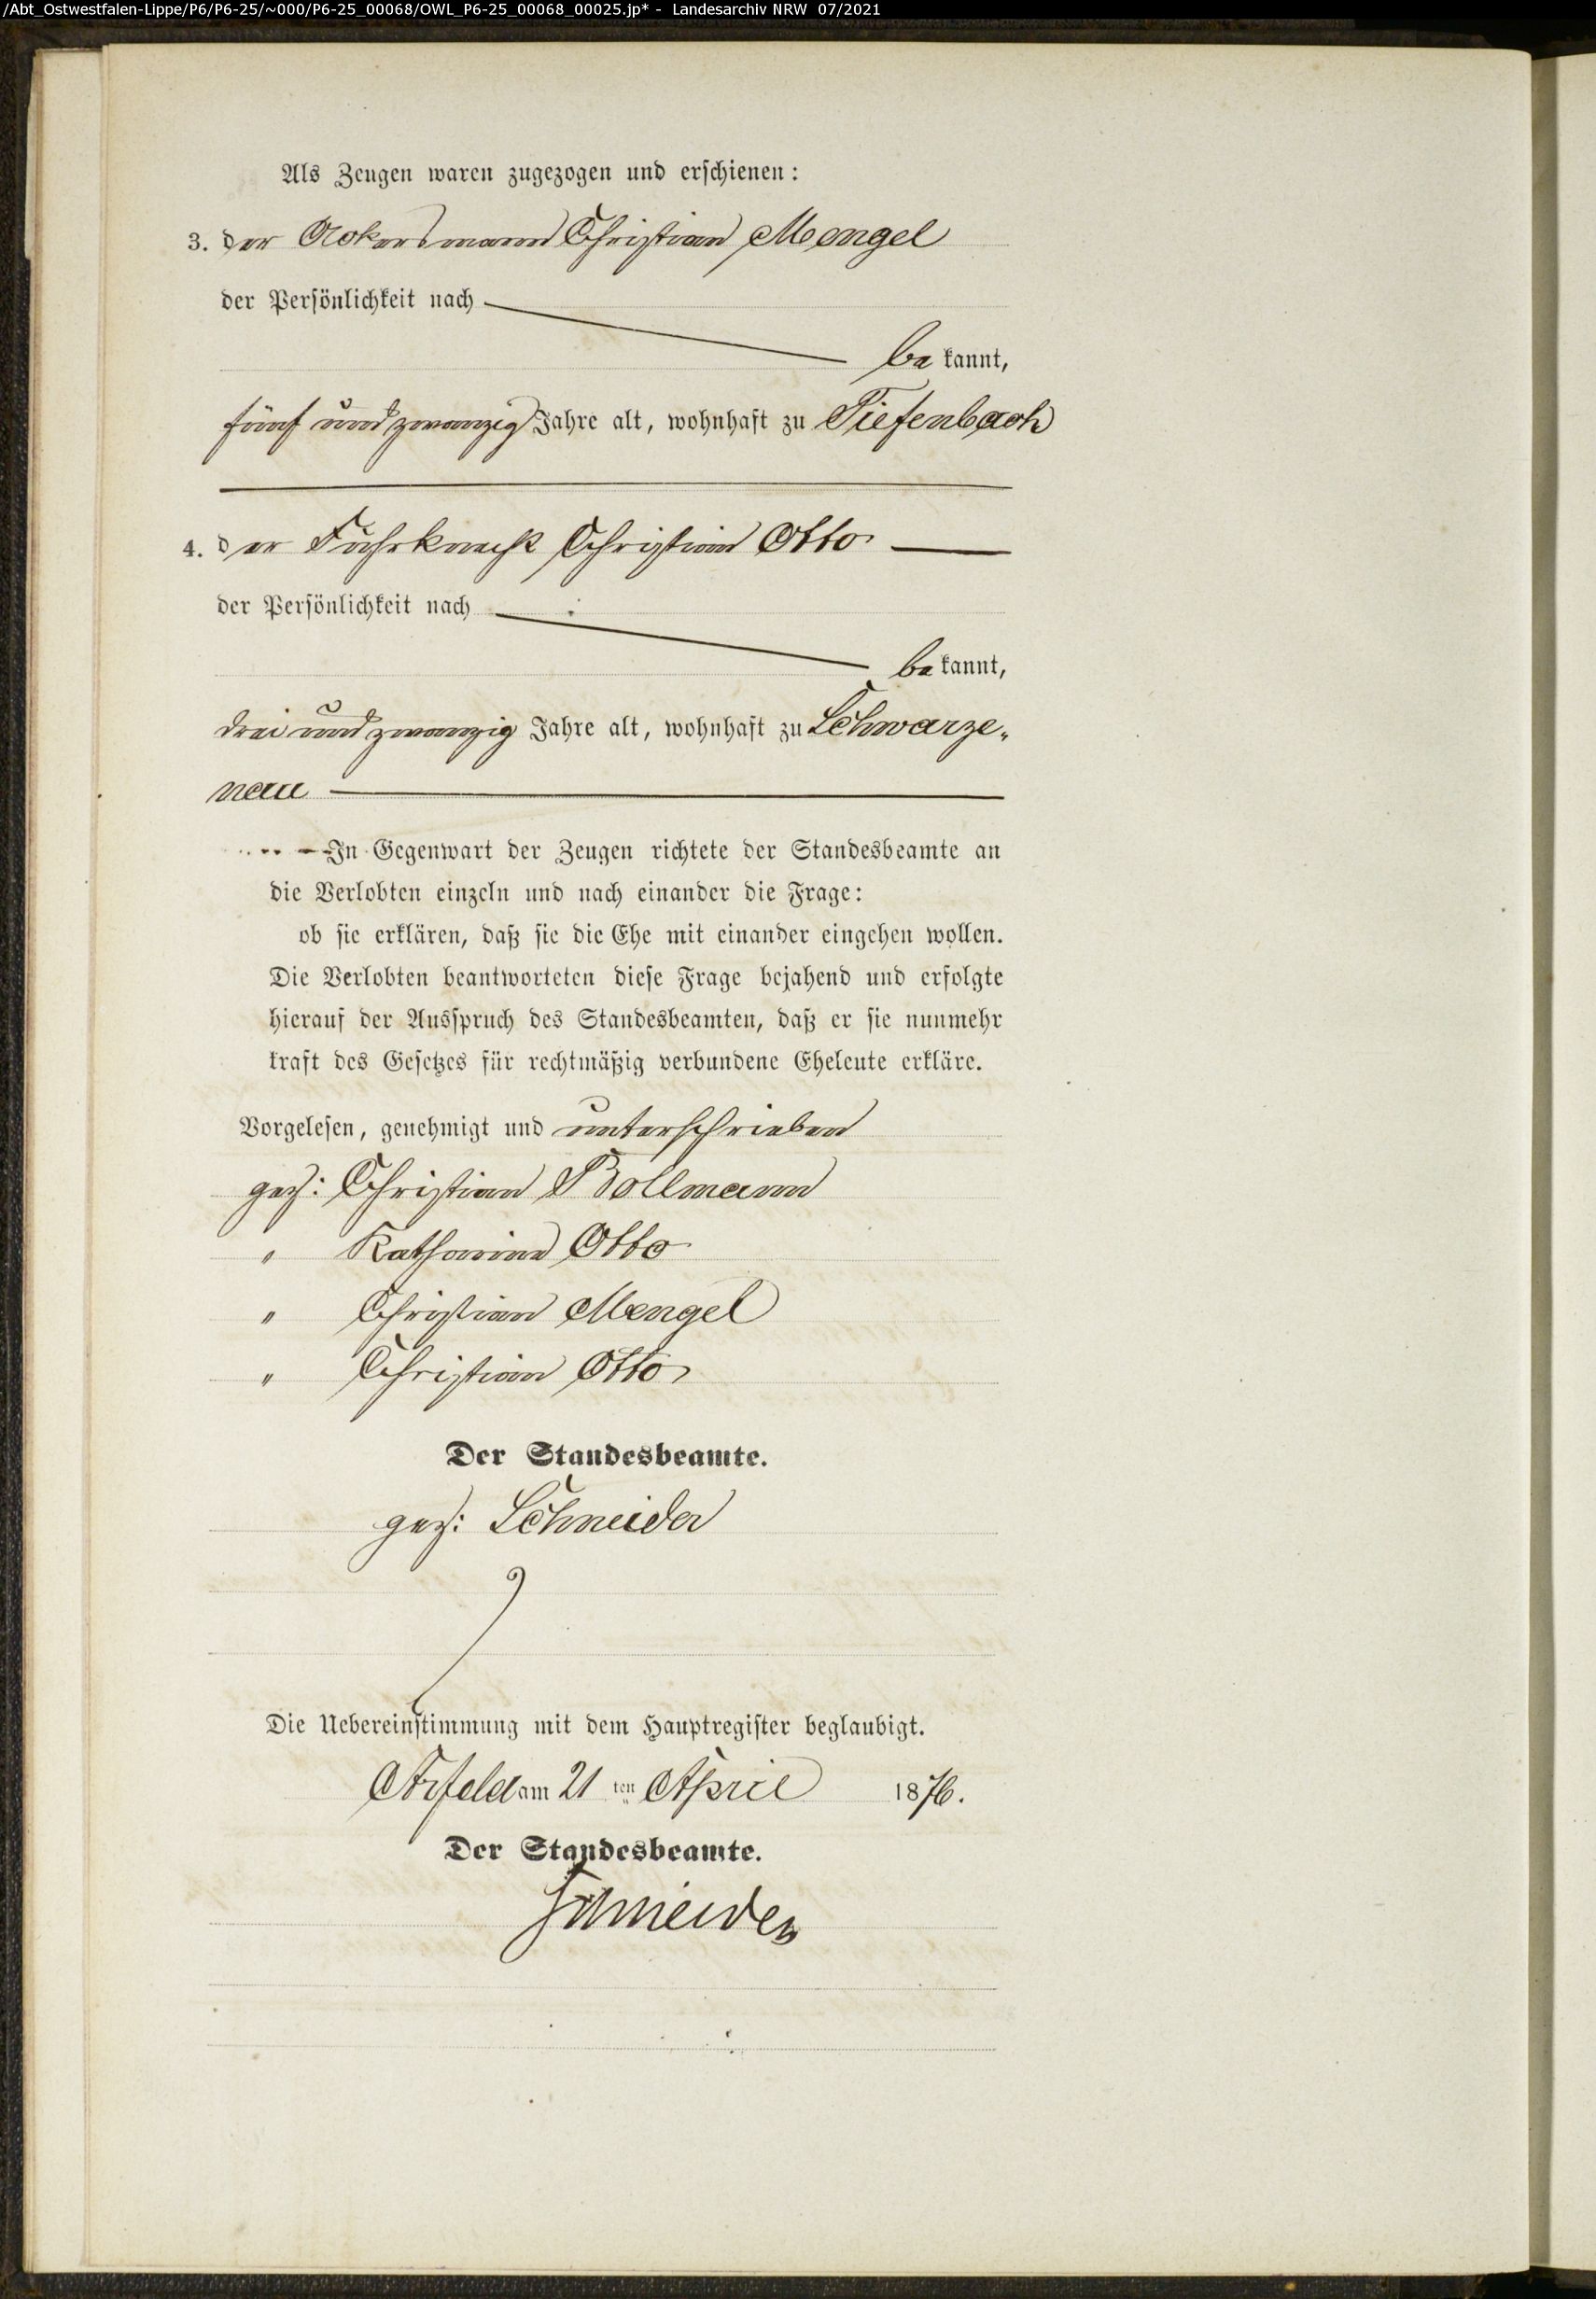 /Abt_Ostwestfalen-Lippe/P6/P6-25/~000/P6-25_00068/OWL_P6-25_00068_00025.jp* - Landesarchiv NRW 07/2021
Als Zeugen waren zugezogen und erschienen:
3. der Ackersmann Christian Mengel
der Persönlichkeit nach
be kannt,
fünf und zwanzig Jahre alt, wohnhaft zu Tiefenbach
4. der Fuhrknecht Christian Otto
der Persönlichkeit nach
be kannt,
drei und zwanzig Jahre alt, wohnhaft zu Schwarze-
nau
In Gegenwart der Zeugen richtete der Standesbeamte an
die Verlobten einzeln und nach einander die Frage:
ob sie erklären, daß sie die Ehe mit einander eingehen wollen.
Die Verlobten beantworteten diese Frage bejahend und erfolgte
hierauf der Ausspruch des Standesbeamten, daß er sie nunmehr
kraft des Gesetzes für rechtmäßig verbundene Eheleute erkläre.
Vorgelesen, genehmigt und unterschrieben
gez: Christian Bollmann
" Katharina Otto
" Christian Mengel
" Christian Otto
Der Standesbeamte.
gez: Schneider
Die Uebereinstimmung mit dem Hauptregister beglaubigt.
Arfeld am 21 ten April 1876.
Der Standesbeamte.
Schneider